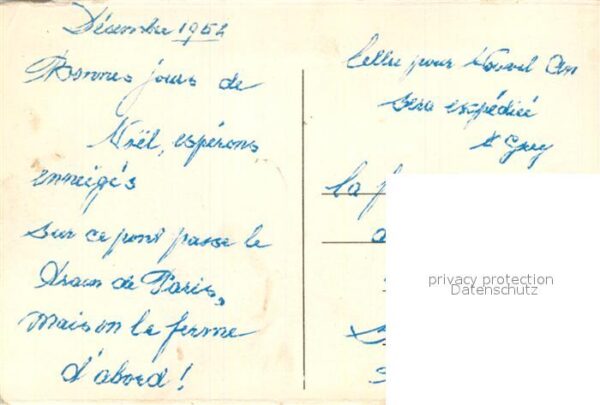 Décembre 1952
Bonnes jours de
Noël, espérons
enneigés
sur ce pont passe le
train de Paris,
mais on le ferme
d'abord !
Celle pour Nouvel An
sera expédiée
la
privacy protection
Datenschutz